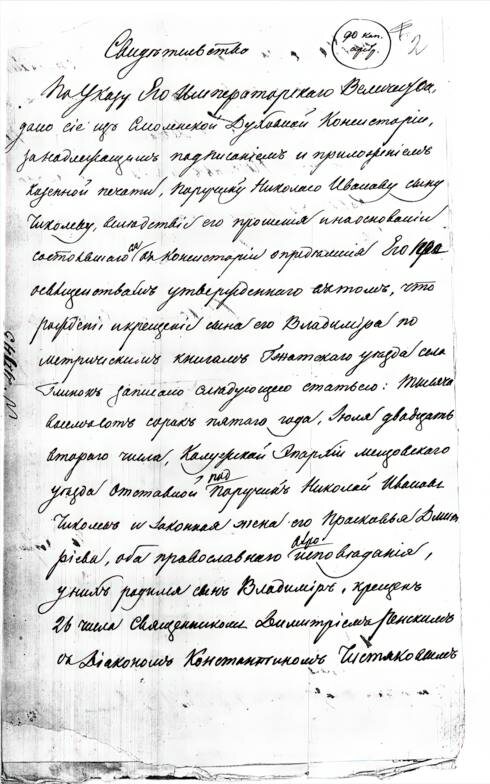 до кап.
2
Свидѣтельство
По Указу Его Императорскаго Величества,
дано сіе изъ Смоленской Духовной Консисторіи,
за надлежащимъ подписаніемъ и приложеніемъ
казенной печати, Поручику Николаю Иванову сыну
Чиколеву, вслѣдствіе его прошенія и на основаніи
состоявшагося въ Консисторіи опредѣленія Его Прео
освященствомъ утвержденнаго въ томъ, что
рожденіе и крещеніе сына его Владиміра по
метрическимъ книгамъ Гжатскаго уѣзда села
Глинокъ записано слѣдующею статьею: Тысяча
восемьсотъ сорокъ пятаго года, Іюля двадцать
втораго числа, Калужской Епархіи мещовскаго
уѣзда отставной подПоручикъ Николай Иванов
Чиколевъ и законная жена его Прасковья Дмит
ріева, оба православнаго исповѣданія,
у нихъ родился сынъ Владиміръ, крещенъ
26 числа Священникомъ Димитріемъ
съ Діакономъ Константиномъ Чистяковымъ